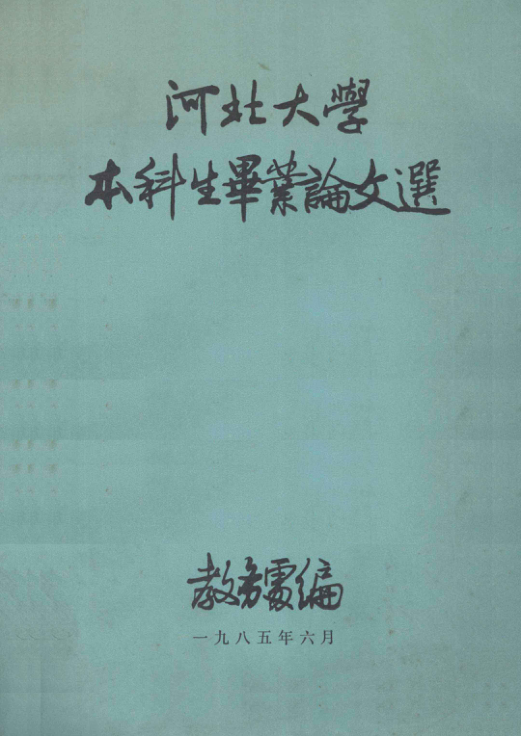 河北大學
本科生畢業論文選
教务處編
一九八五年六月